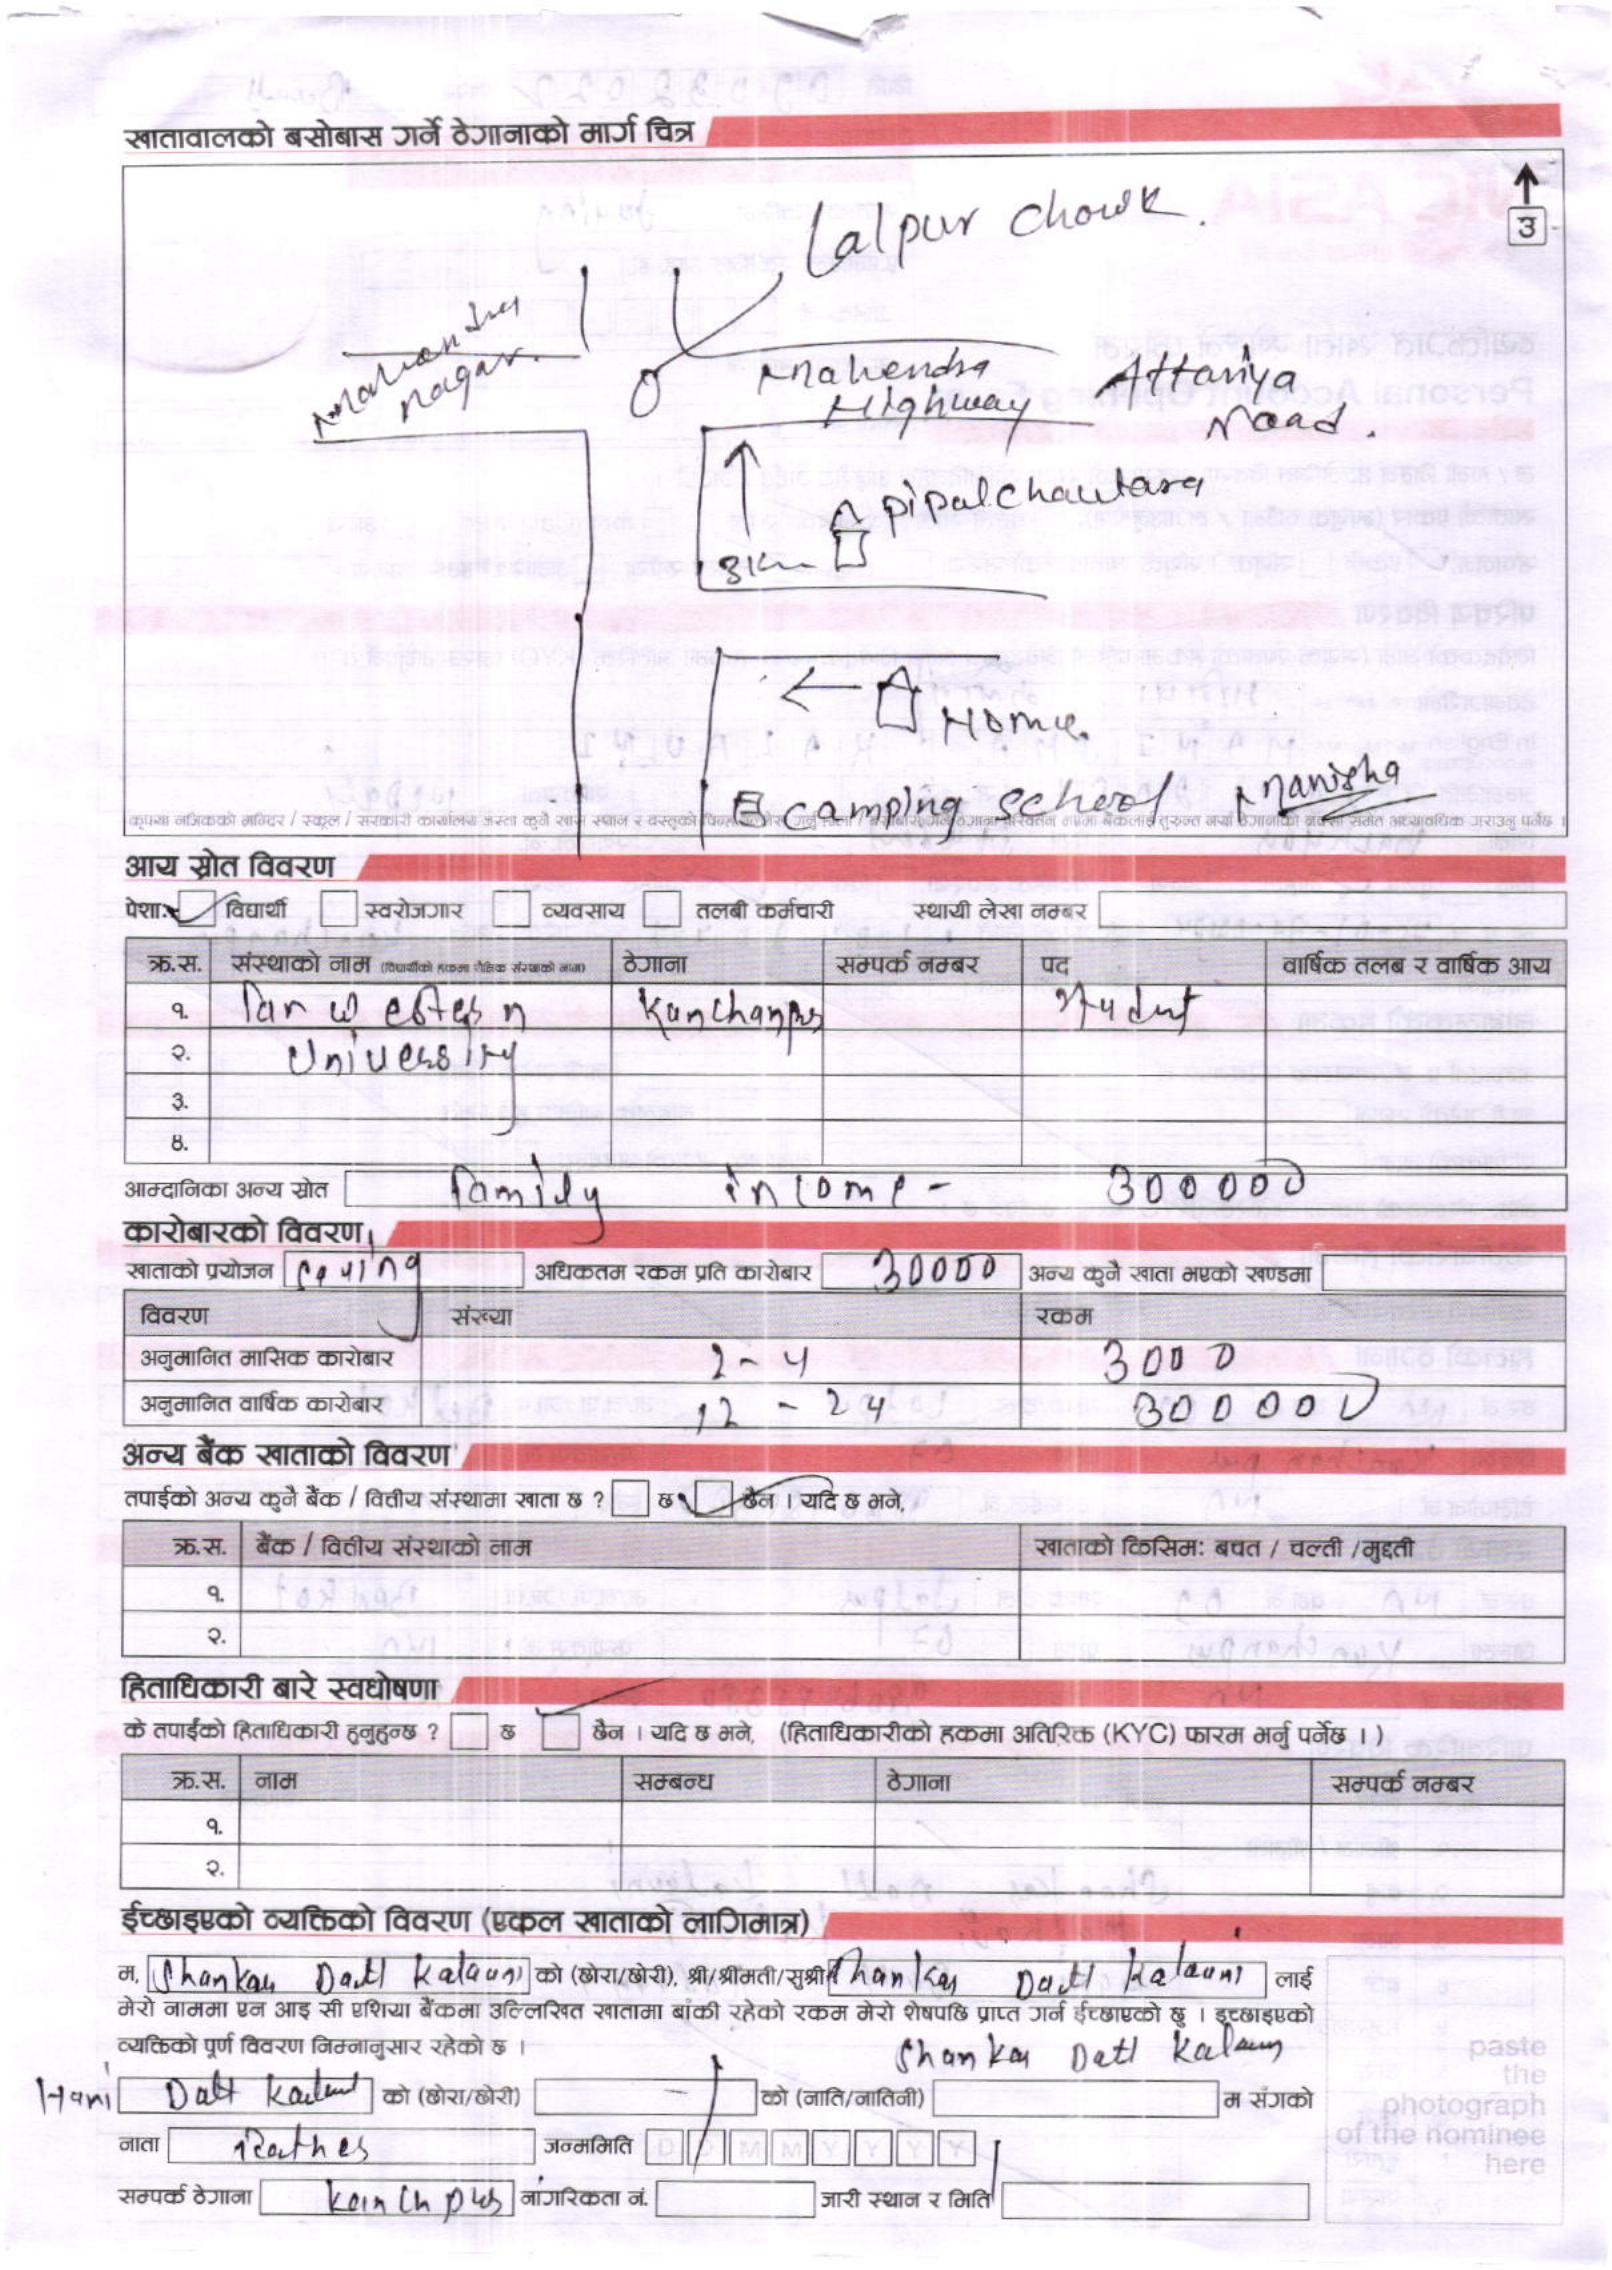 खातावालको बसोबास गर्ने ठेगानाको मार्ग चित्र
उ
Lalpur Chowk.
Mahendra
nagar.
Mahendra
Highway
Attariya
Road.
pipalchautara
3km
Home.
camping school
Manisha
कृपया नजिकको मन्दिर / स्कूल / सरकारी कार्यालय जस्ता कुनै खास स्थान र वस्तुको
आय स्रोत विवरण
पेशा: विद्यार्थी स्वरोजगार व्यवसाय तलबी कर्मचारी स्थायी लेखा नम्बर
क्र.स. संस्थाको नाम (विद्यार्थीको हकमा शैक्षिक संस्थाको नाम) ठेगाना सम्पर्क नम्बर पद वार्षिक तलब र वार्षिक आय
१. Far western Kanchanpur Student
२. University
३.
४.
आम्दानिका अन्य स्रोत Family income - 300000
कारोबारको विवरण
खाताको प्रयोजन saving अधिकतम रकम प्रति कारोबार 30000 अन्य कुनै खाता भएको खण्डमा
विवरण संख्या रकम
अनुमानित मासिक कारोबार 2-4 3000
अनुमानित वार्षिक कारोबार 12 - 24 300000
अन्य बैंक खाताको विवरण
तपाईको अन्य कुनै बैंक / वित्तीय संस्थामा खाता छ ? छ छैन । यदि छ भने,
क्र.स. बैंक / वित्तीय संस्थाको नाम खाताको किसिम: बचत / चल्ती /मुद्दती
१.
२.
हिताधिकारी बारे स्वघोषणा
के तपाईंको हिताधिकारी हुनुहुन्छ ? छ छैन । यदि छ भने, (हिताधिकारीको हकमा अतिरिक्त (KYC) फारम भर्नु पर्नेछ ।)
क्र.स. नाम सम्बन्ध ठेगाना सम्पर्क नम्बर
१.
२.
ईच्छाइएको व्यक्तिको विवरण (एकल खाताको लागिमात्र)
म, Shankar Datt Kalauni को (छोरा/छोरी), श्री/श्रीमती/सुश्री Shankar Datt Kalauni लाई
मेरो नाममा एन आइ सी एशिया बैंकमा उल्लिखित खातामा बांकी रहेको रकम मेरो शेषपछि प्राप्त गर्न ईच्छाएको छु । इच्छाइएको
व्यक्तिको पूर्ण विवरण निम्नानुसार रहेको छ ।
Shankar Datt Kalauni
Hari Datt Kalauni को (छोरा/छोरी) - को (नाति/नातिनी) म संगको
नाता Father जन्ममिति D D M M Y Y Y Y
सम्पर्क ठेगाना नागरिकता नं. जारी स्थान र मिति
paste
the
photograph
of the nominee
here